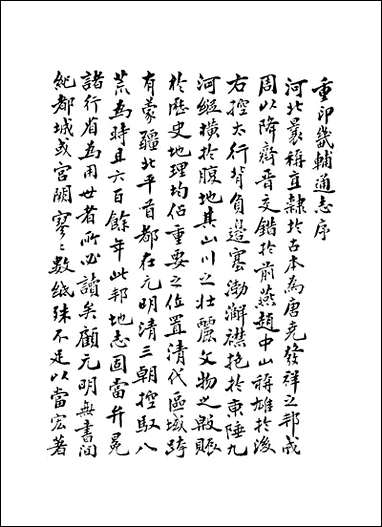 重印畿輔通志序
河北曩稱直隸於古本為唐堯發祥之邦成
周以降齊晉交錯於前燕趙中山稱雄於後
右控太行背負邊塞渤澥襟抱於東陲九
河縱橫於腹地其山川之壯麗文物之殷賑
於歷史地理均佔重要之位置清代區域跨
有蒙疆北平首都在元明清三朝控馭八
荒為時且六百餘年此邦地志固當弁冕
諸行省為用世者所必讀矣顧元明無書間
紀都城或宮闕寥寥數紙殊不足以當宏著